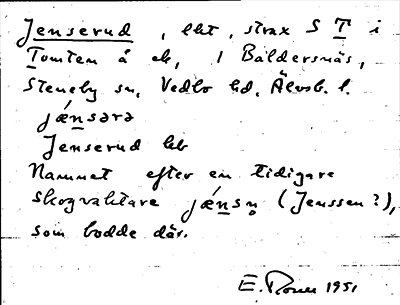 Jenserud, lht, strax S T i
Tomten å ek, 1 Baldersnäs,
Steneby sn, Vedbo hd, Älvsb. l.
jǽnsərə
Jenserud kb
Namnet efter en tidigare
skogvaktare jǽnsn̥ (Jenssen?),
som bodde där.
E. 1951